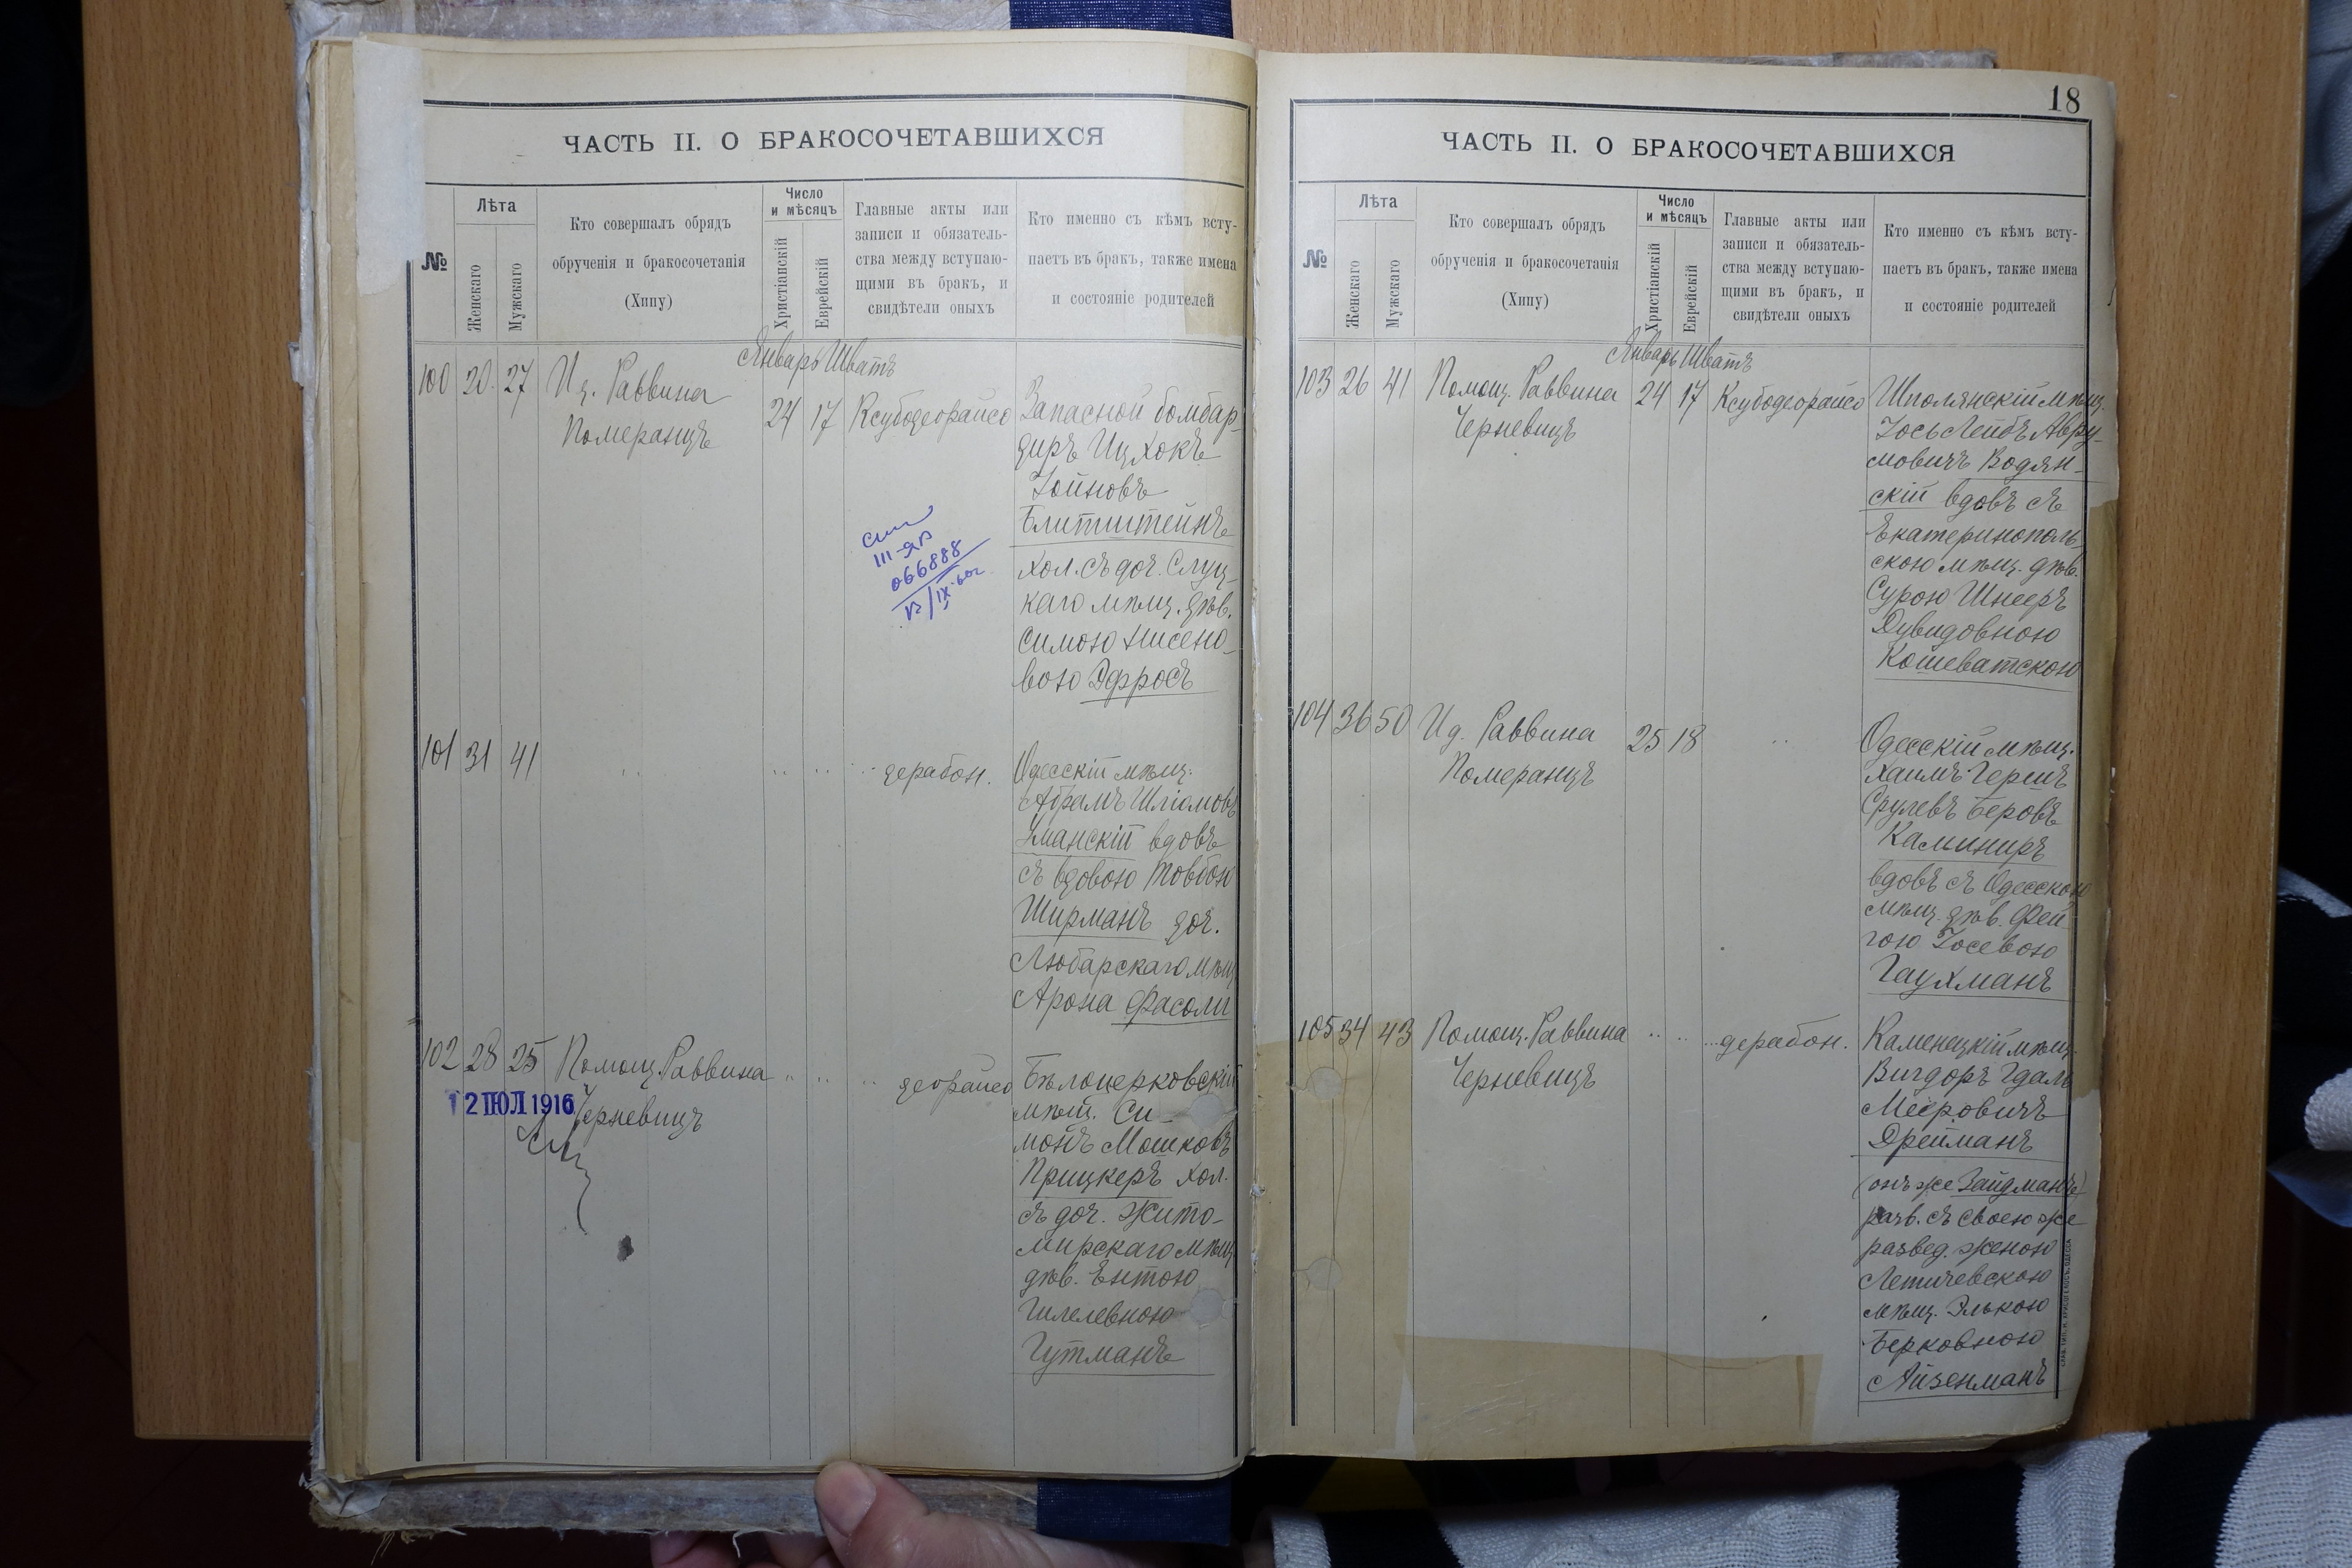 ЧАСТЬ II. О БРАКОСОЧЕТАВШИХСЯ
№
Лѣта
Женскаго
Мужскаго
Кто совершалъ обрядъ
обрученія и бракосочетанія
(Хипу)
Число
и мѣсяцъ
Христіанскій
Еврейскій
Главные акты или
записи и обязатель-
ства между вступаю-
щими въ бракъ, и
свидѣтели оныхъ
Кто именно съ кѣмъ всту-
паетъ въ бракъ, также имена
и состояніе родителей
Январь Шватъ
100 20 27 Ид. Раввина
Померанцъ
24 17 Ксубодеорайсо
Запасной бомбар-
диръ Ицхокъ
Зойновъ
Блитштейнъ
хол. съ доч. Слуц-
каго мѣщ. дѣв.
Симою Нисено-
вою Эфросъ
III-ЯП
066888
101 31 41 .. .. .. .. дерабон.
Одесскій мѣщ.
Абрамъ Шліомовъ
Уманскій вдовъ
съ вдовою Товбою
Ширманъ доч.
Любарскаго мѣщ.
Арона Фасоли
102 28 25 Помощ. Раввина
Черневицъ
.. .. .. деорайсо
12 ІЮЛ 1916
Бѣлоцерковскій
мѣщ. Си-
монъ Мошковъ
Прицкеръ хол.
съ доч. Жито-
мирскаго мѣщ.
дѣв. Ентою
Гилелевною
Гутманъ
18
ЧАСТЬ II. О БРАКОСОЧЕТАВШИХСЯ
№
Лѣта
Женскаго
Мужскаго
Кто совершалъ обрядъ
обрученія и бракосочетанія
(Хипу)
Число
и мѣсяцъ
Христіанскій
Еврейскій
Главные акты или
записи и обязатель-
ства между вступаю-
щими въ бракъ, и
свидѣтели оныхъ
Кто именно съ кѣмъ всту-
паетъ въ бракъ, также имена
и состояніе родителей
Январь Шватъ
103 26 41 Помощ. Раввина
Черневицъ
24 17 Ксубодеорайсо
Шполянскій мѣщ.
Іось Лейбъ Авру-
мовичъ Водян-
скій вдовъ съ
Екатеринополь-
скою мѣщ. дѣв.
Сурою Шнееръ
Дувидовною
Кошеватскою
104 36 50 Ид. Раввина
Померанцъ
25 18 ..
Одесскій мѣщ.
Хаимъ Гершъ
Срулевъ Беровъ
Калиниръ
вдовъ съ Одесскою
мѣщ. дѣв. Фей-
гою Іосевою
Гаухманъ
105 34 43 Помощ. Раввина
Черневицъ
.. .. .. дерабон.
Каменецкій мѣщ.
Вигдоръ Гдаль
Мееровичъ
Дрейманъ
(онъ же Зайдманъ)
разв. съ своею же
развед. женою
Летичевскою
мѣщ. Элькою
Берковною
Айзенманъ